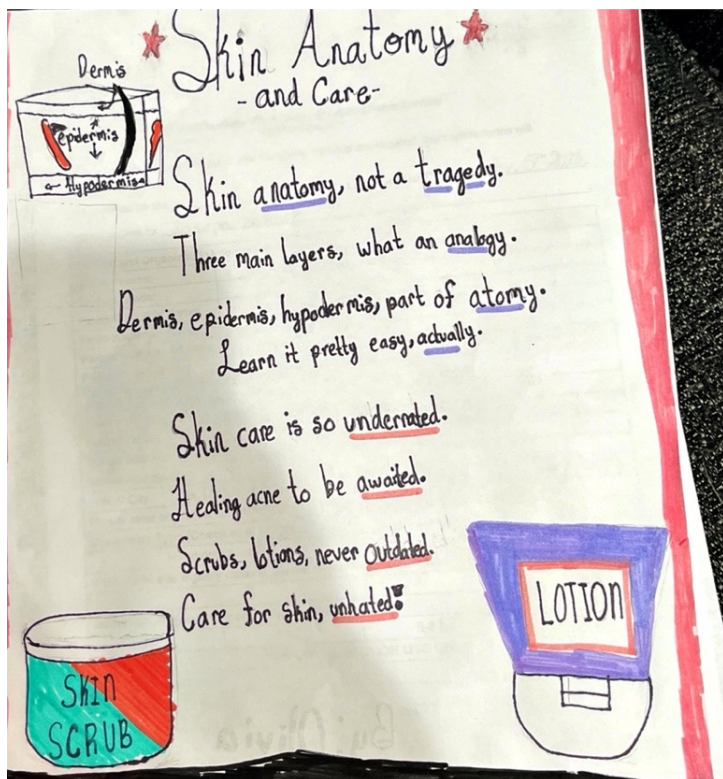 Skin Anatomy
- and Care -
Dermis
epidermis
Hypodermis
Skin anatomy, not a tragedy.
Three main layers, what an analogy.
Dermis, epidermis, hypodermis, part of atomy.
Learn it pretty easy, actually.
Skin care is so underrated.
Healing acne to be awaited.
Scrubs, lotions, never outdated.
Care for skin, unhated!
LOTION
SKIN
SCRUB
By: Olivia